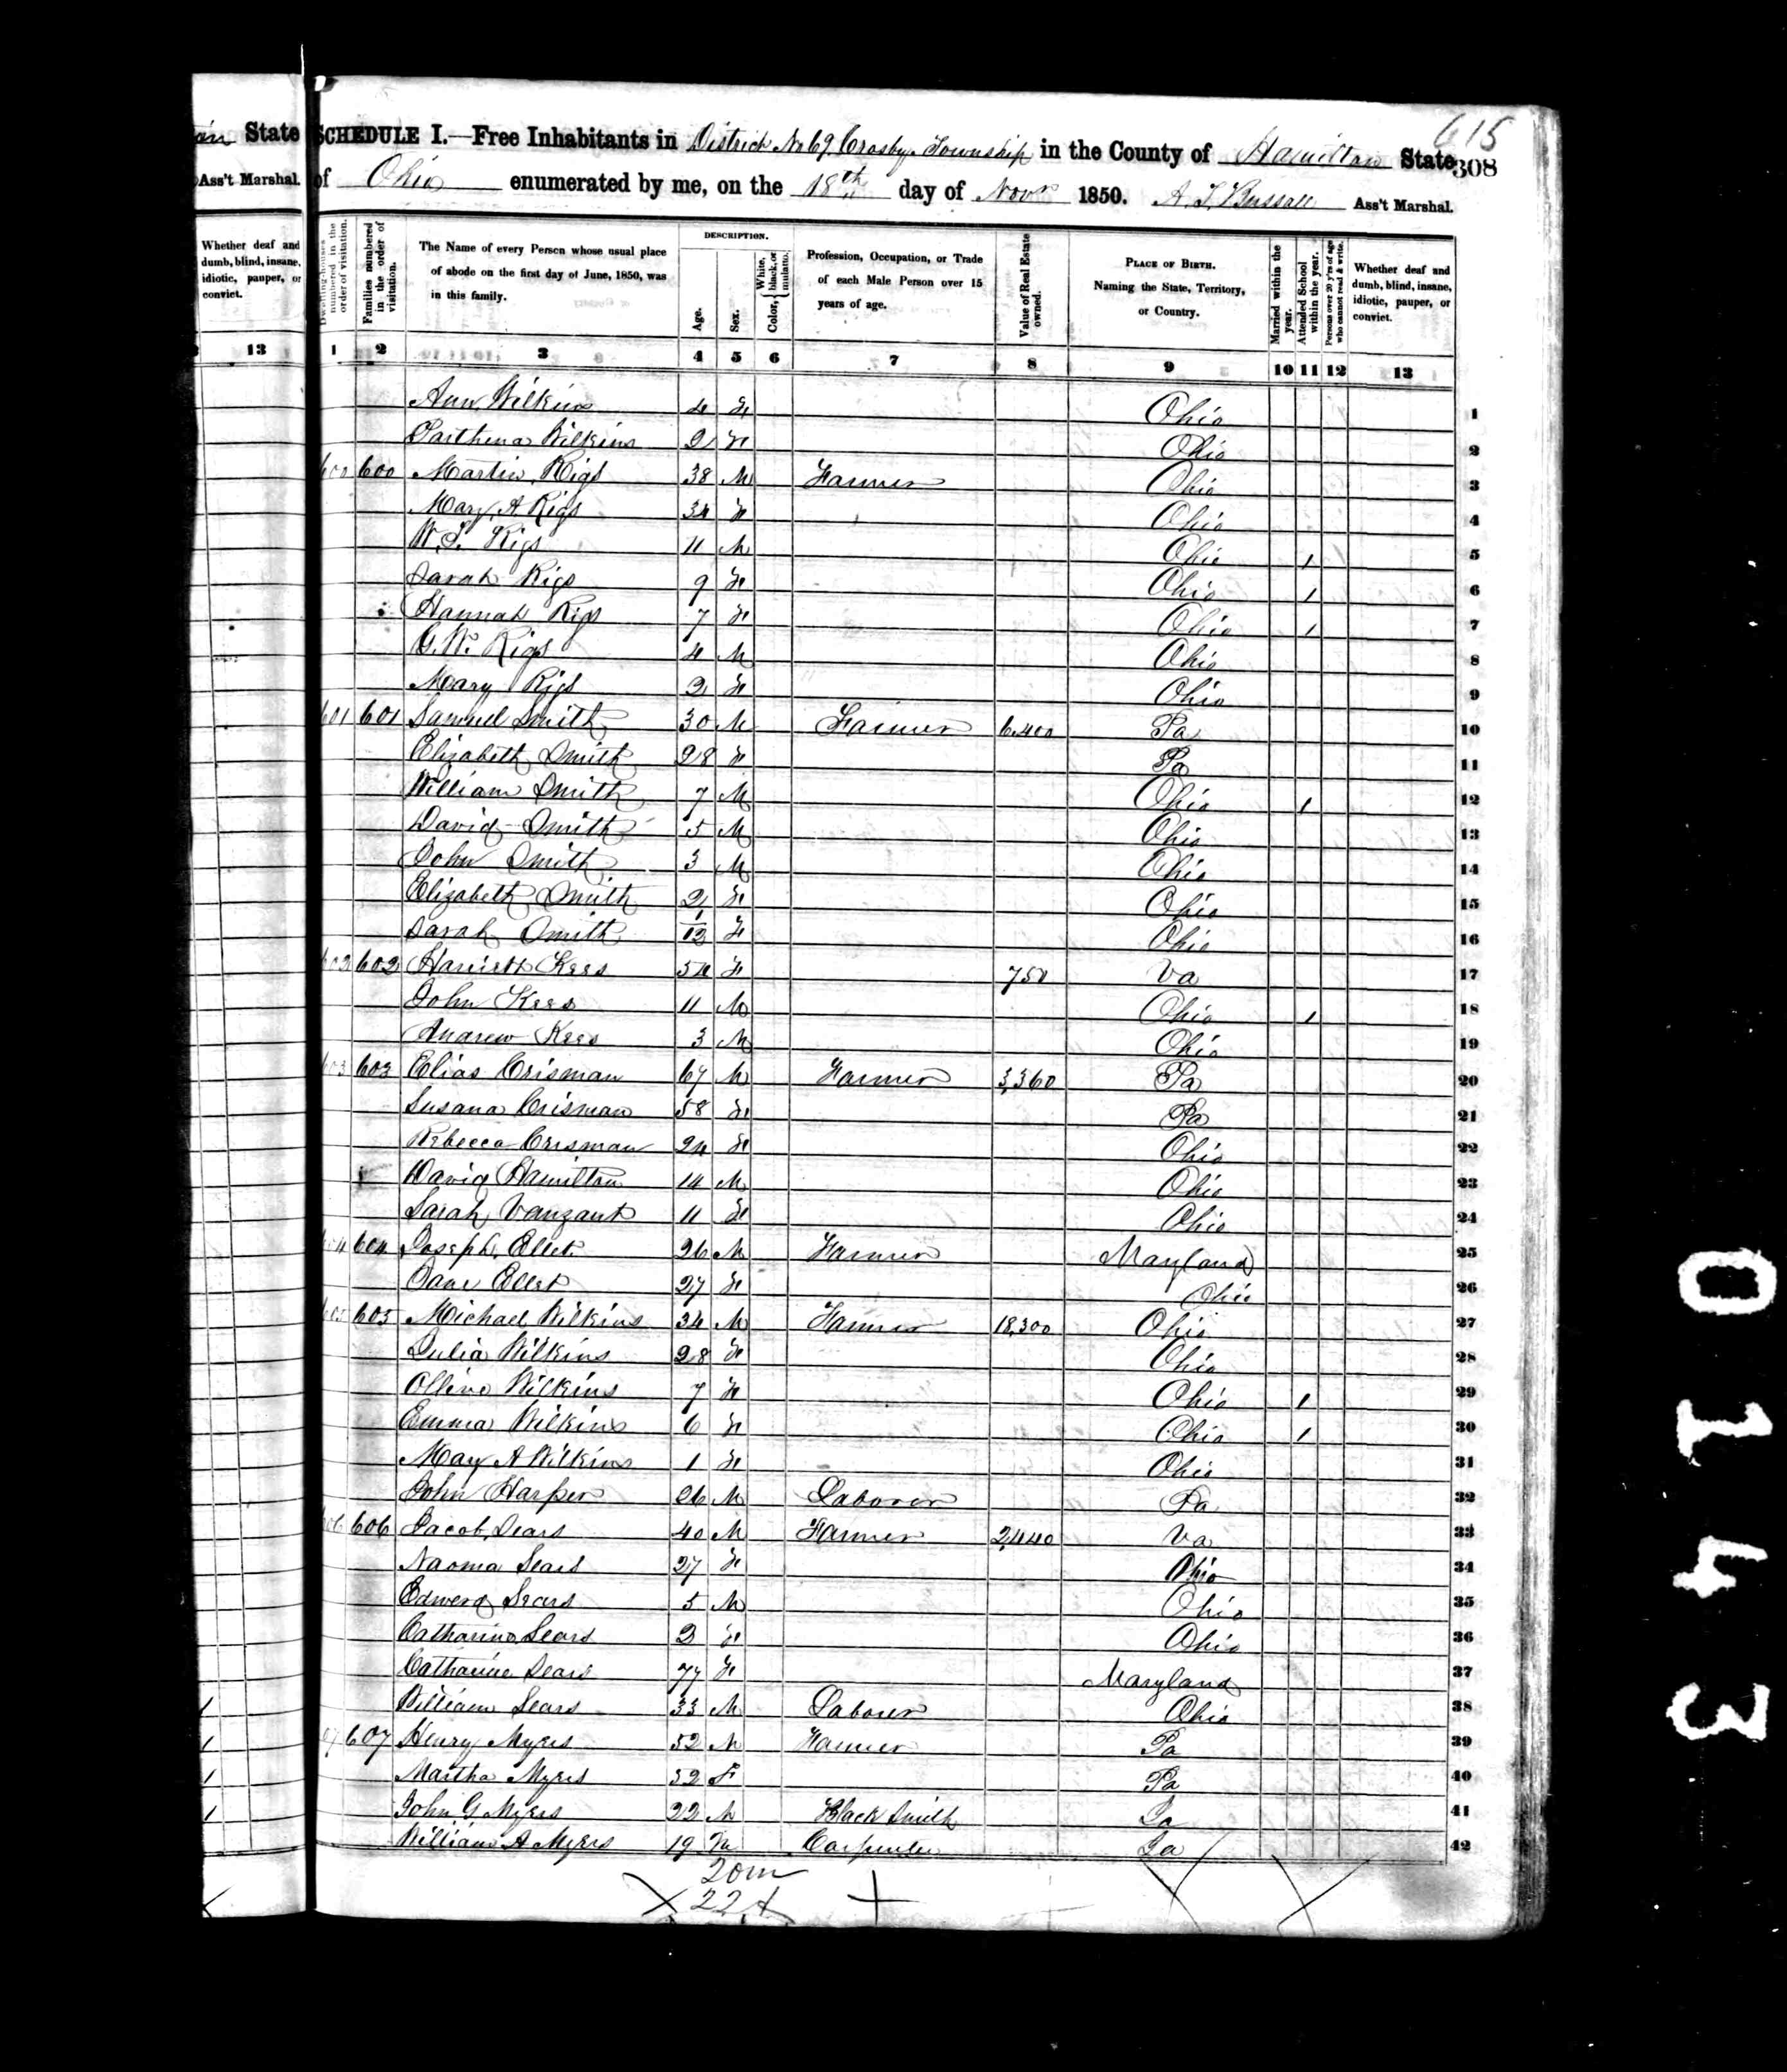 615
SCHEDULE I.—Free Inhabitants in District No 69 Crosby Township in the County of Hamilton State 308
of Ohio enumerated by me, on the 18th day of Novr 1850. A. J. Bussall Ass't Marshal.
State
Ass't Marshal.
Whether deaf and dumb, blind, insane, idiotic, pauper, or convict.
13
Dwelling-houses numbered in the order of visitation.
Families numbered in the order of visitation.
The Name of every Person whose usual place of abode on the first day of June, 1850, was in this family.
DESCRIPTION.
Age.
Sex.
Color, White, black, or mulatto.
Profession, Occupation, or Trade of each Male Person over 15 years of age.
Value of Real Estate owned.
PLACE OF BIRTH. Naming the State, Territory, or Country.
Married within the year.
Attended School within the year.
Persons over 20 y'rs of age who cannot read & write.
Whether deaf and dumb, blind, insane, idiotic, pauper, or convict.
1 2 3 4 5 6 7 8 9 10 11 12 13
Ann Wilkins 4 F Ohio 1
Parthena Wilkins 2 F Ohio 2
600 600 Martin Rigs 38 M Farmer Ohio 3
Mary A Rigs 34 F Ohio 4
W. S. Rigs 11 M Ohio 1 5
Sarah Rigs 9 F Ohio 1 6
Hannah Rigs 7 F Ohio 1 7
G. W. Rigs 4 M Ohio 8
Mary Rigs 2 F Ohio 9
601 601 Samuel Smith 30 M Farmer 6,400 Pa 10
Elizabeth Smith 28 F Pa 11
William Smith 7 M Ohio 1 12
David Smith 5 M Ohio 13
John Smith 3 M Ohio 14
Elizabeth Smith 2 F Ohio 15
Sarah Smith 1/12 F Ohio 16
602 602 Harriett Kees 54 F 750 Va 17
John Kees 11 M Ohio 1 18
Andrew Kees 3 M Ohio 19
603 603 Elias Crisman 67 M Farmer 3,360 Pa 20
Susana Crisman 58 F Pa 21
Rebecca Crisman 24 F Ohio 22
David Hamilton 14 M Ohio 23
Sarah Vanzant 11 F Ohio 24
604 604 Joseph Ellet 26 M Farmer Maryland 25
Jane Ellet 27 F Ohio 26
605 605 Michael Wilkins 34 M Farmer 18,300 Ohio 27
Julia Wilkins 28 F Ohio 28
Ollive Wilkins 7 F Ohio 1 29
Emma Wilkins 6 F Ohio 1 30
May A Wilkins 1 F Ohio 31
John Harper 26 M Laborer Pa 32
606 606 Jacob Sears 40 M Farmer 2,440 Va 33
Naoma Sears 27 F Ohio 34
Edward Sears 5 M Ohio 35
Catharine Sears 2 F Ohio 36
Catharine Sears 77 F Maryland 37
William Sears 33 M Laborer Ohio 38
607 Henry Myers 52 M Farmer Pa 39
Martha Myers 52 F Pa 40
John G Myers 22 M Black Smith Pa 41
William A Myers 19 M Carpenter Pa 42
20m
22f
0143